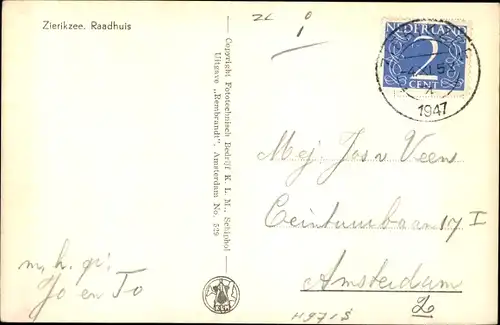 Zierikzee. Raadhuis
Copyright Fototechnisch Bedrijf K. L. M., Schiphol
Uitgave „Rembrandt”, Amsterdam No. 529
NEDERLAND
2
CENT
1947
Mej. Jos v Veen
Ceintuurbaan 17 I
Amsterdam
Z
m, h. gr.
Jo en To